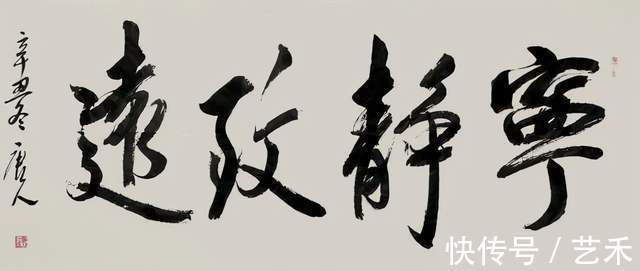 寧靜致遠
辛丑冬 唐人
快传号 / 艺禾